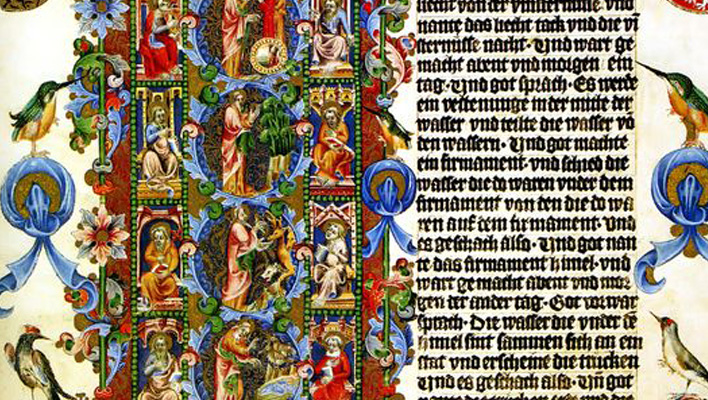 liecht von der vinsternusse. vnd
nante das liecht tack vnd die vī
sternusse nacht. Vnd wart ge
macht abent vnd morgen ein
tag. Vnd got sprach. Es werde
ein vestenunge in der mitte der
wasser vnd teilte die wasser vō
den wassern. Vnd got machte
ein firmament. vnd schied die
wasser die do waren vnder dem
firmament von den die do wa
ren auf dem firmament. Vnd
es geschach also. Vnd got nan
te das firmament himel. vnd
wart gemacht abent vnd mor
gen der ander tag. Got vorwar
sprach. Die wasser die vnder dē
himel sint sammen sich an ein
stat vnd erscheine die trucken
Vnd es geschach also. Vn̄ got